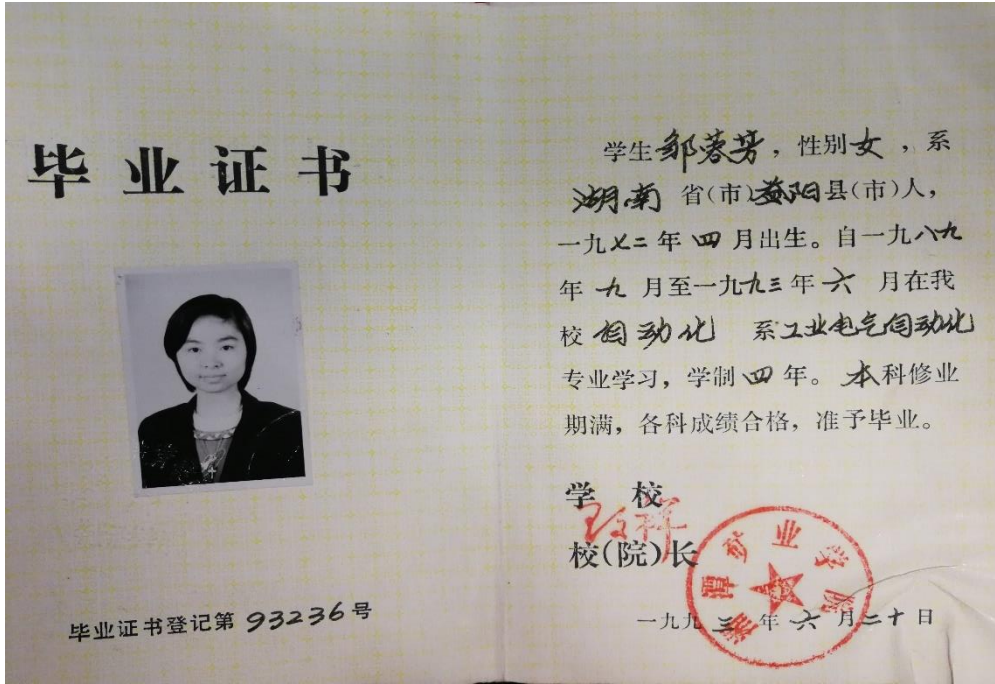 毕业证书
毕业证书登记第 93236 号
学生邹蓉芳，性别女，系
湖南 省(市)益阳县(市)人，
一九七二年四月出生。自一九八九
年九月至一九九三年六月在我
校自动化 系工业电气自动化
专业学习，学制四年。本科修业
期满，各科成绩合格，准予毕业。
学 校
校(院)长
湘潭矿业学院
一九九三年六月二十日